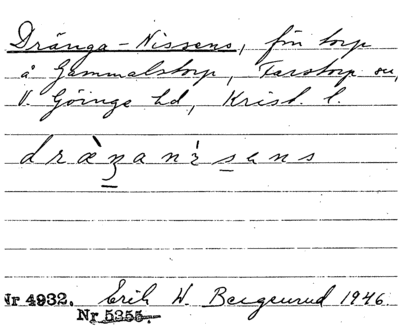 Dränga-Nissens, fǿn torp
å Gammalstorp, Farstorp sn,
V. Göinge hd, Krist. l.
dræ̀ŋanìsens
Nr 4932. Erik W. Bergenrud 1946.
Nr 5355.